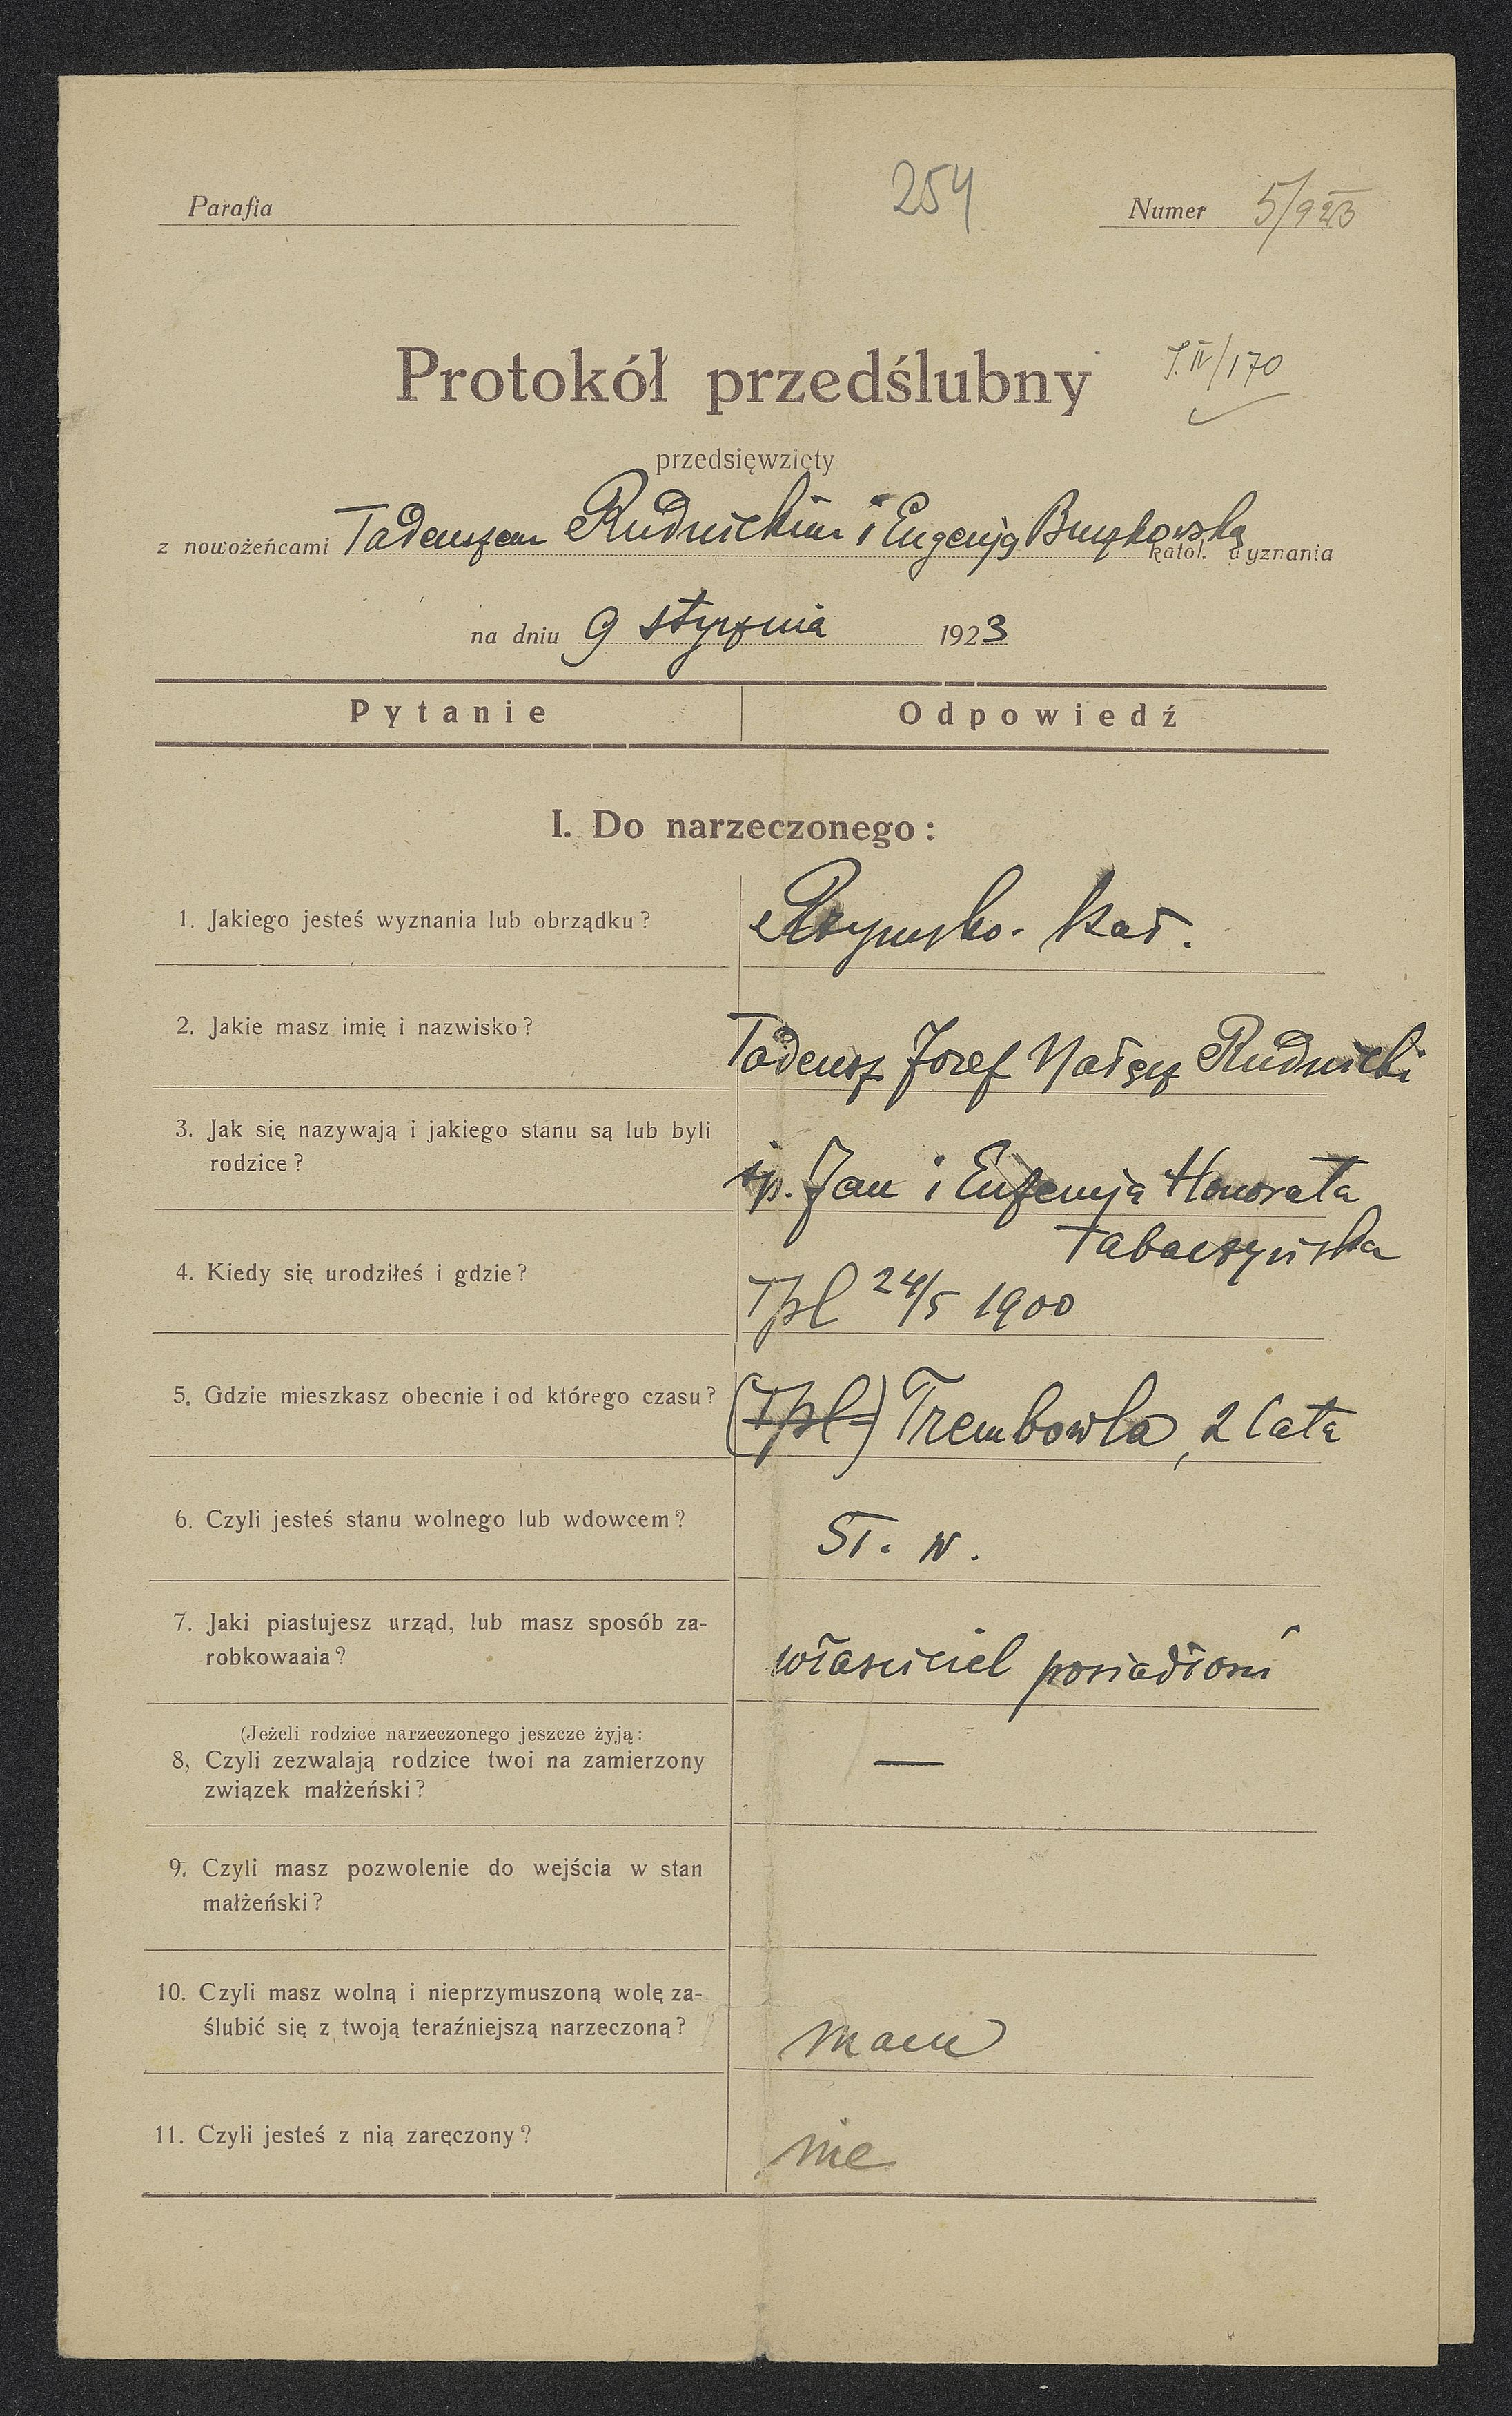 Parafia
254
Numer 5/923
T.IV/170
Protokół przedślubny
przedsięwzięty
z nowożeńcami Tadeuszem Rudnickim i Eugenją katol. wyznania
na dniu 9 stycznia 1923
Pytanie Odpowiedź
I. Do narzeczonego:
1. Jakiego jesteś wyznania lub obrządku? Rzymsko-kat.
2. Jakie masz imię i nazwisko? Tadeusz Józef Nałęcz Rudnicki
3. Jak się nazywają i jakiego stanu są lub byli
rodzice? śp. Jan i Eufemja Honorata
Tabaczyńska
4. Kiedy się urodziłeś i gdzie? Tpl 24/5 1900
5. Gdzie mieszkasz obecnie i od którego czasu? (Tpl) Trembowla, 2 lata
6. Czyli jesteś stanu wolnego lub wdowcem? St. w.
7. Jaki piastujesz urząd, lub masz sposób za-
robkowaaia? właściciel posiadłości
(Jeżeli rodzice narzeczonego jeszcze żyją:
8, Czyli zezwalają rodzice twoi na zamierzony —
związek małżeński?
9. Czyli masz pozwolenie do wejścia w stan
małżeński?
10. Czyli masz wolną i nieprzymuszoną wolę za-
ślubić się z twoją teraźniejszą narzeczoną? mam
11. Czyli jesteś z nią zaręczony? nie